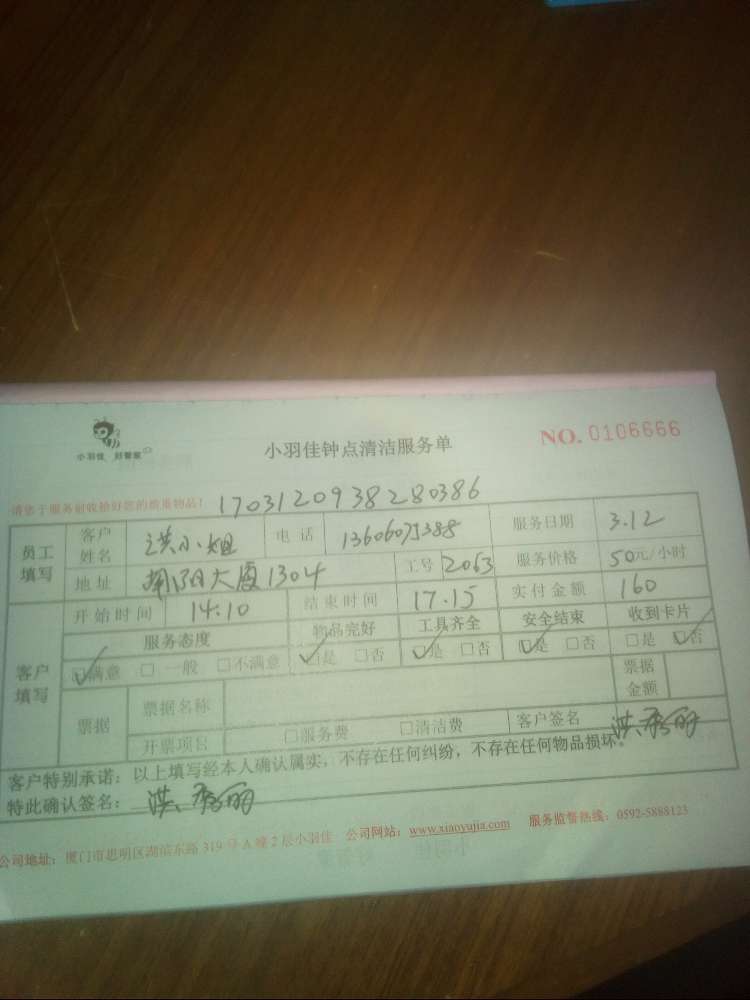 小羽佳 好管家
小羽佳钟点清洁服务单
NO. 0106666
请您于服务前收拾好您的贵重物品! 1703120938280386
员工填写 客户姓名 洪小姐 电话 服务日期 3.12
地址 南阳大厦1304 工号 2063 服务价格 50元/小时
客户填写 开始时间 14:10 结束时间 17.15 实付金额 160
服务态度 物品完好 工具齐全 安全结束 收到卡片
☑满意 □一般 □不满意 ☑是 □否 ☑是 □否 ☑是 □否 □是 ☑否
票据 票据名称 票据金额
开票项目 □服务费 □清洁费 客户签名 洪秀丽
客户特别承诺:以上填写经本人确认属实,不存在任何纠纷,不存在任何物品损坏。
特此确认签名: 洪秀丽
公司地址:厦门市思明区湖滨东路319号A幢2层小羽佳 公司网站:www.xiaoyujia.com 服务监督热线:0592-5888123